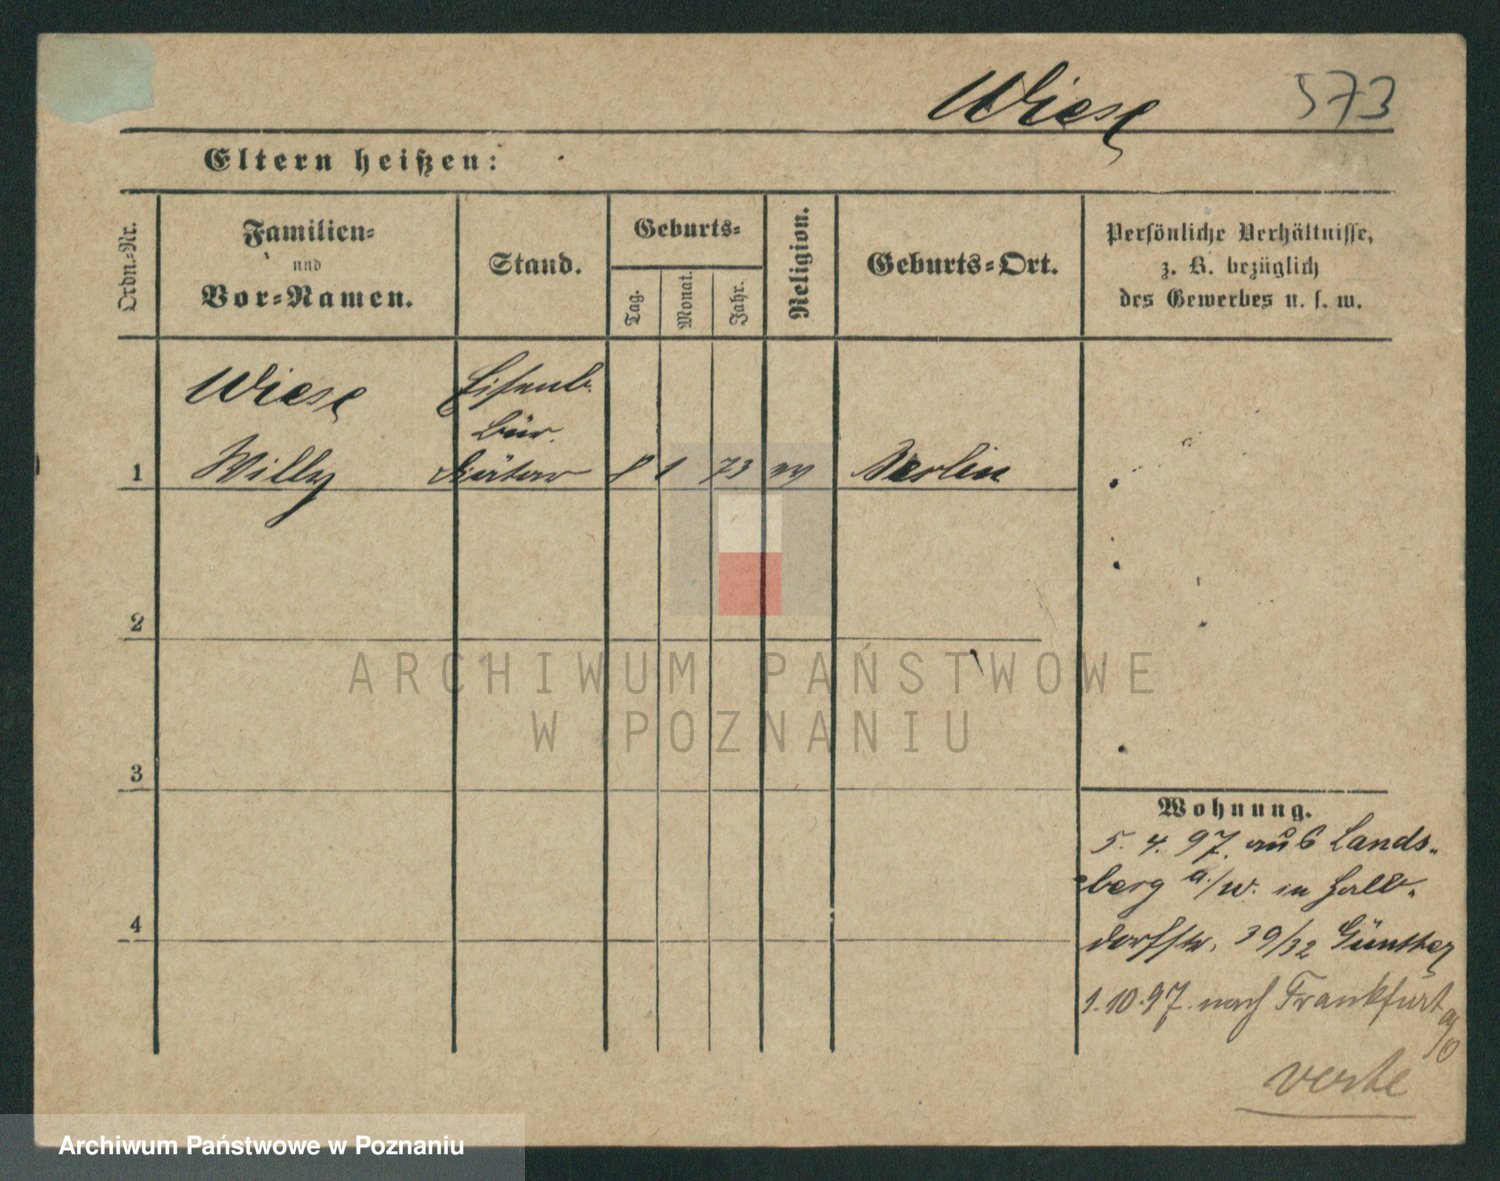 Wiese 573
Eltern heißen:
Ordn.-Nr.
Familien-
und
Vor-Namen.
Stand.
Geburts-
Tag.
Monat.
Jahr.
Religion.
Geburts-Ort.
Persönliche Verhältnisse,
z. B. bezüglich
des Gewerbes u. s. w.
Wiese Eisenb.
bür.
1 Willy diätar 8 1 73 ev Berlin
2
3
4
Wohnung.
5. 4. 97. aus Lands-
berg a./W. in Halb-
dorfstr. 39/32 Günther
1.10.97. nach Frankfurt
a/O
verte
ARCHIWUM PAŃSTWOWE
W POZNANIU
Archiwum Państwowe w Poznaniu